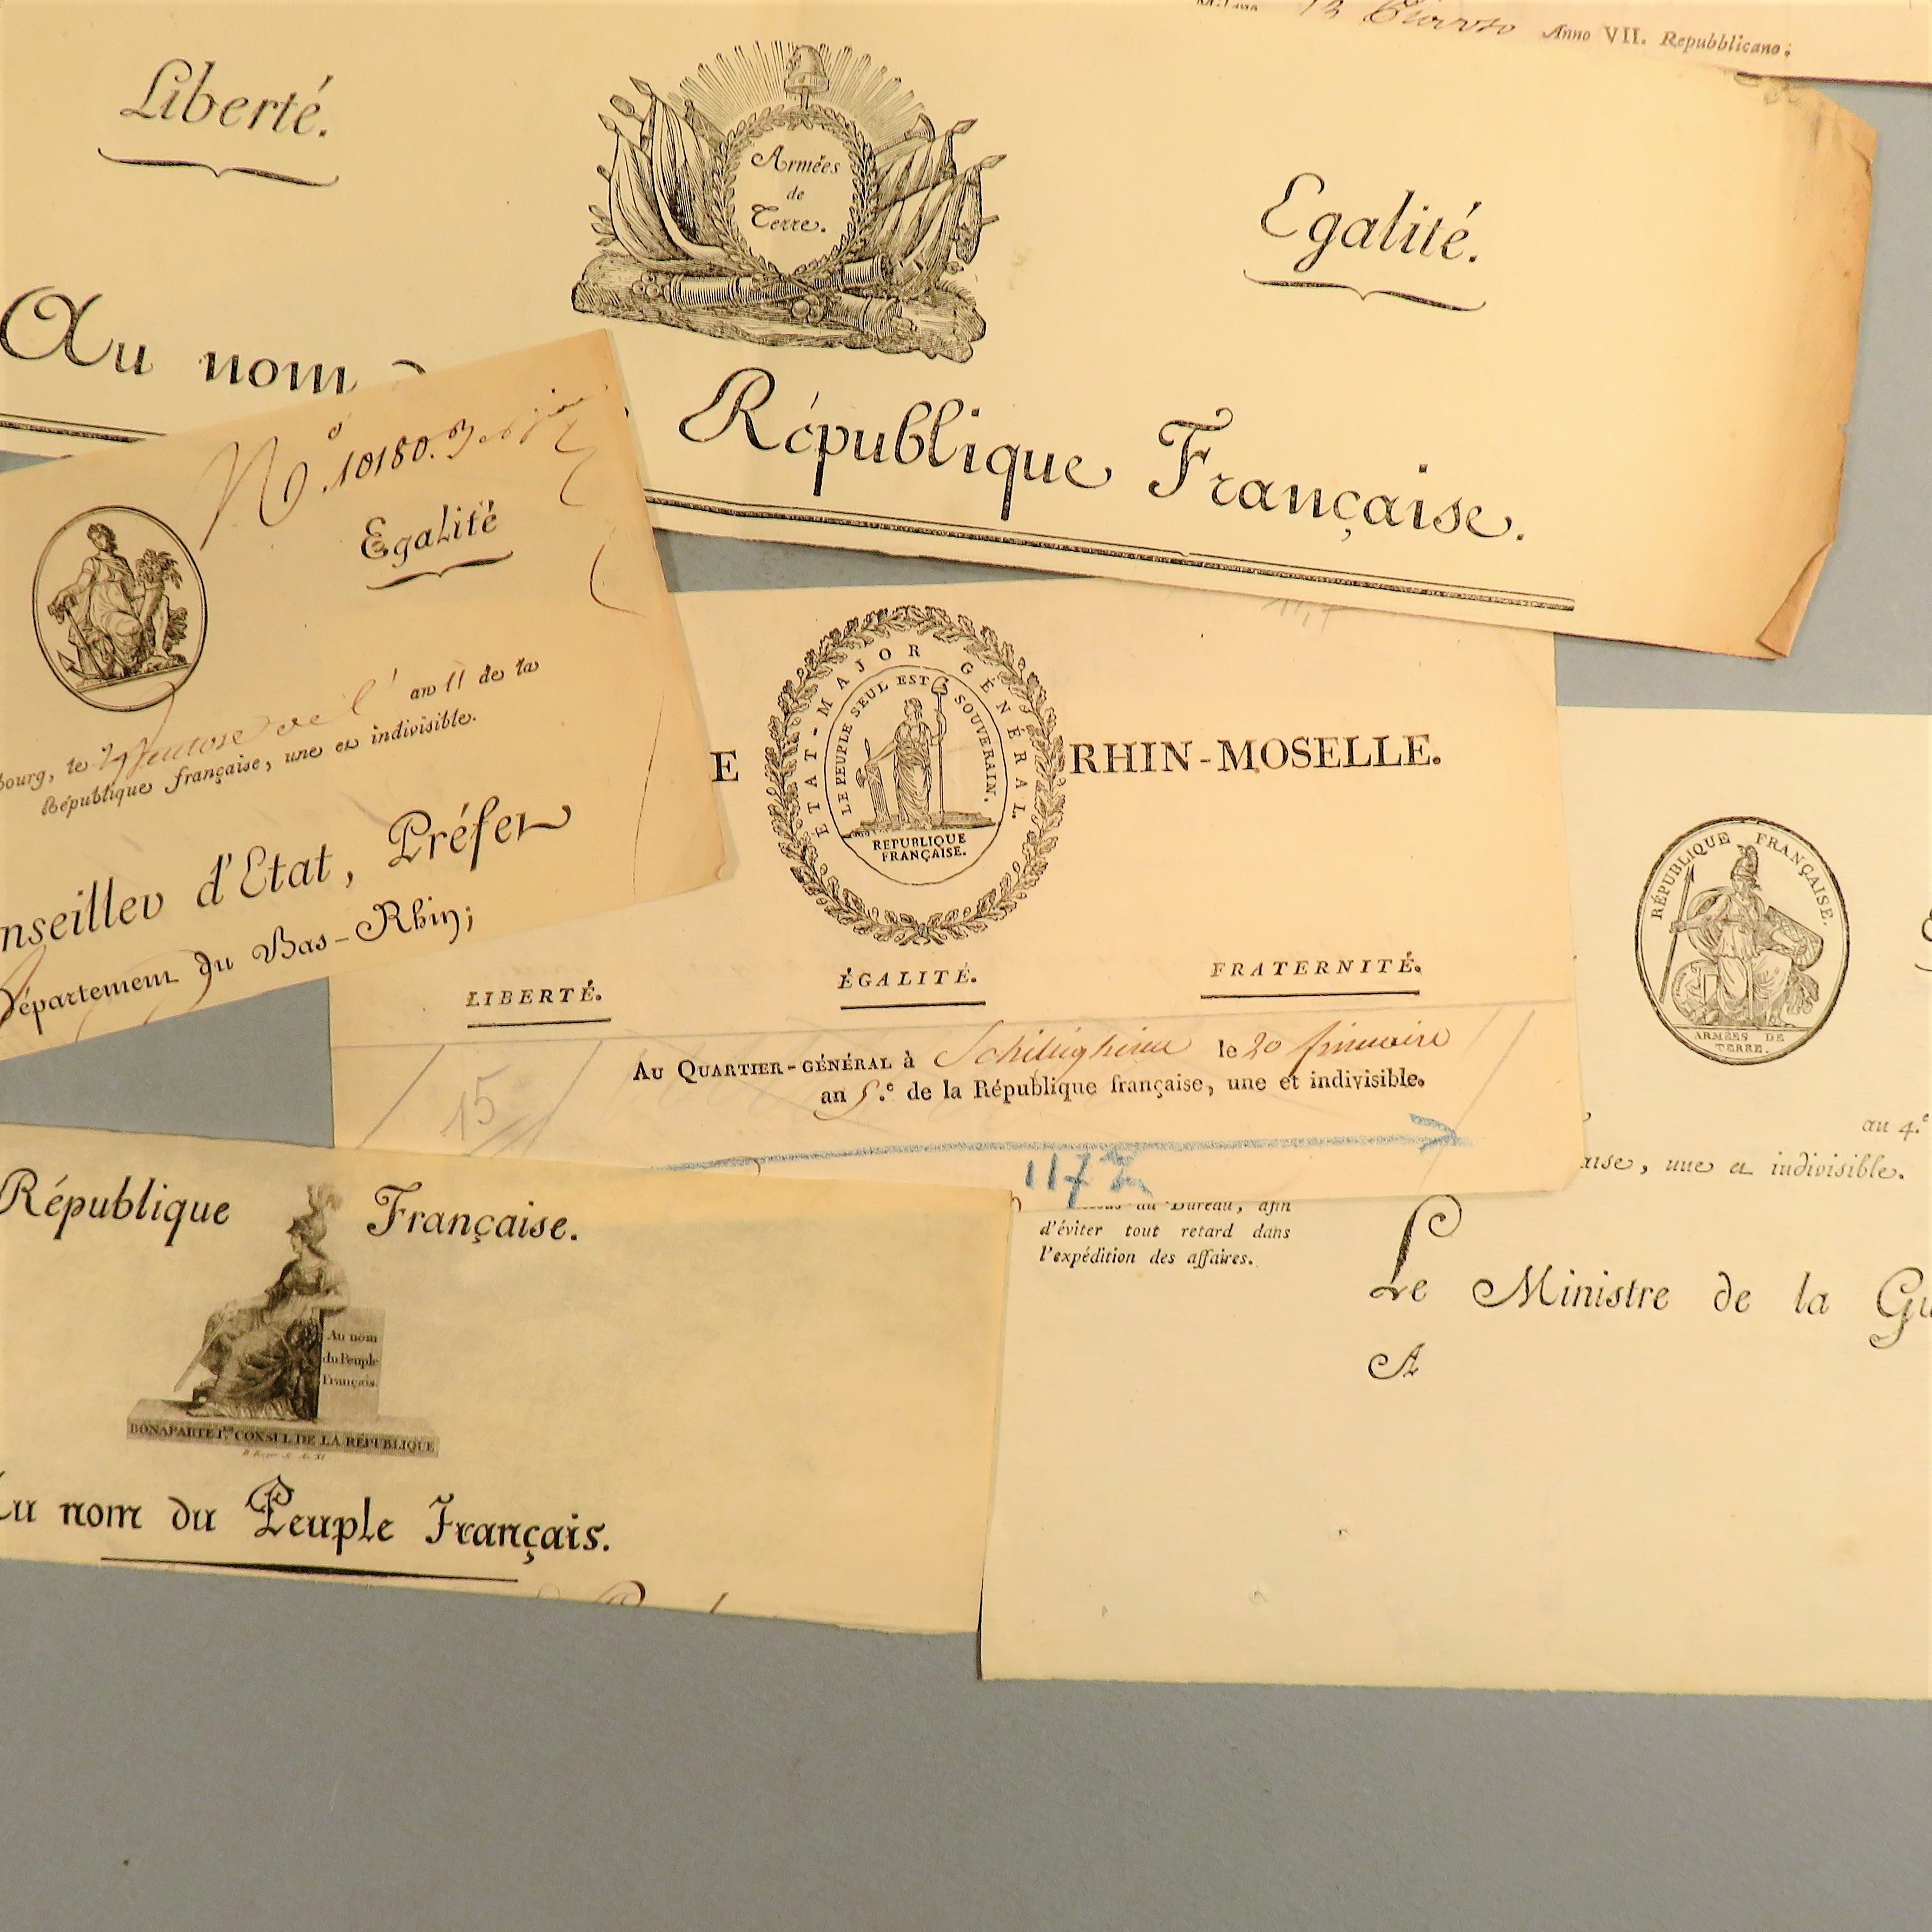 Anno VII. Repubblicano.
Liberté.
Armées
de
Terre.
Egalité.
Au nom
République Française.
N.º 10180.
Egalité
bourg, le an 11 de la
République française, une et indivisible.
nseiller d'Etat, Préfet
Département du Bas-Rhin;
E RHIN-MOSELLE.
ÉTAT-MAJOR GÉNÉRAL.
LE PEUPLE SEUL EST SOUVERAIN.
REPUBLIQUE
FRANÇAISE.
LIBERTÉ. ÉGALITÉ. FRATERNITÉ.
Au Quartier-général à le 20 frimaire
an 5.e de la République française, une et indivisible.
15
117
RÉPUBLIQUE FRANÇAISE.
ARMÉES DE
TERRE.
an 4.e
aise, une et indivisible.
au Bureau, afin
d'éviter tout retard dans
l'expédition des affaires.
Le Ministre de la Gu
A
République Française.
Au nom
du Peuple
Français.
BONAPARTE 1.er CONSUL DE LA RÉPUBLIQUE
Au nom du Peuple Français.